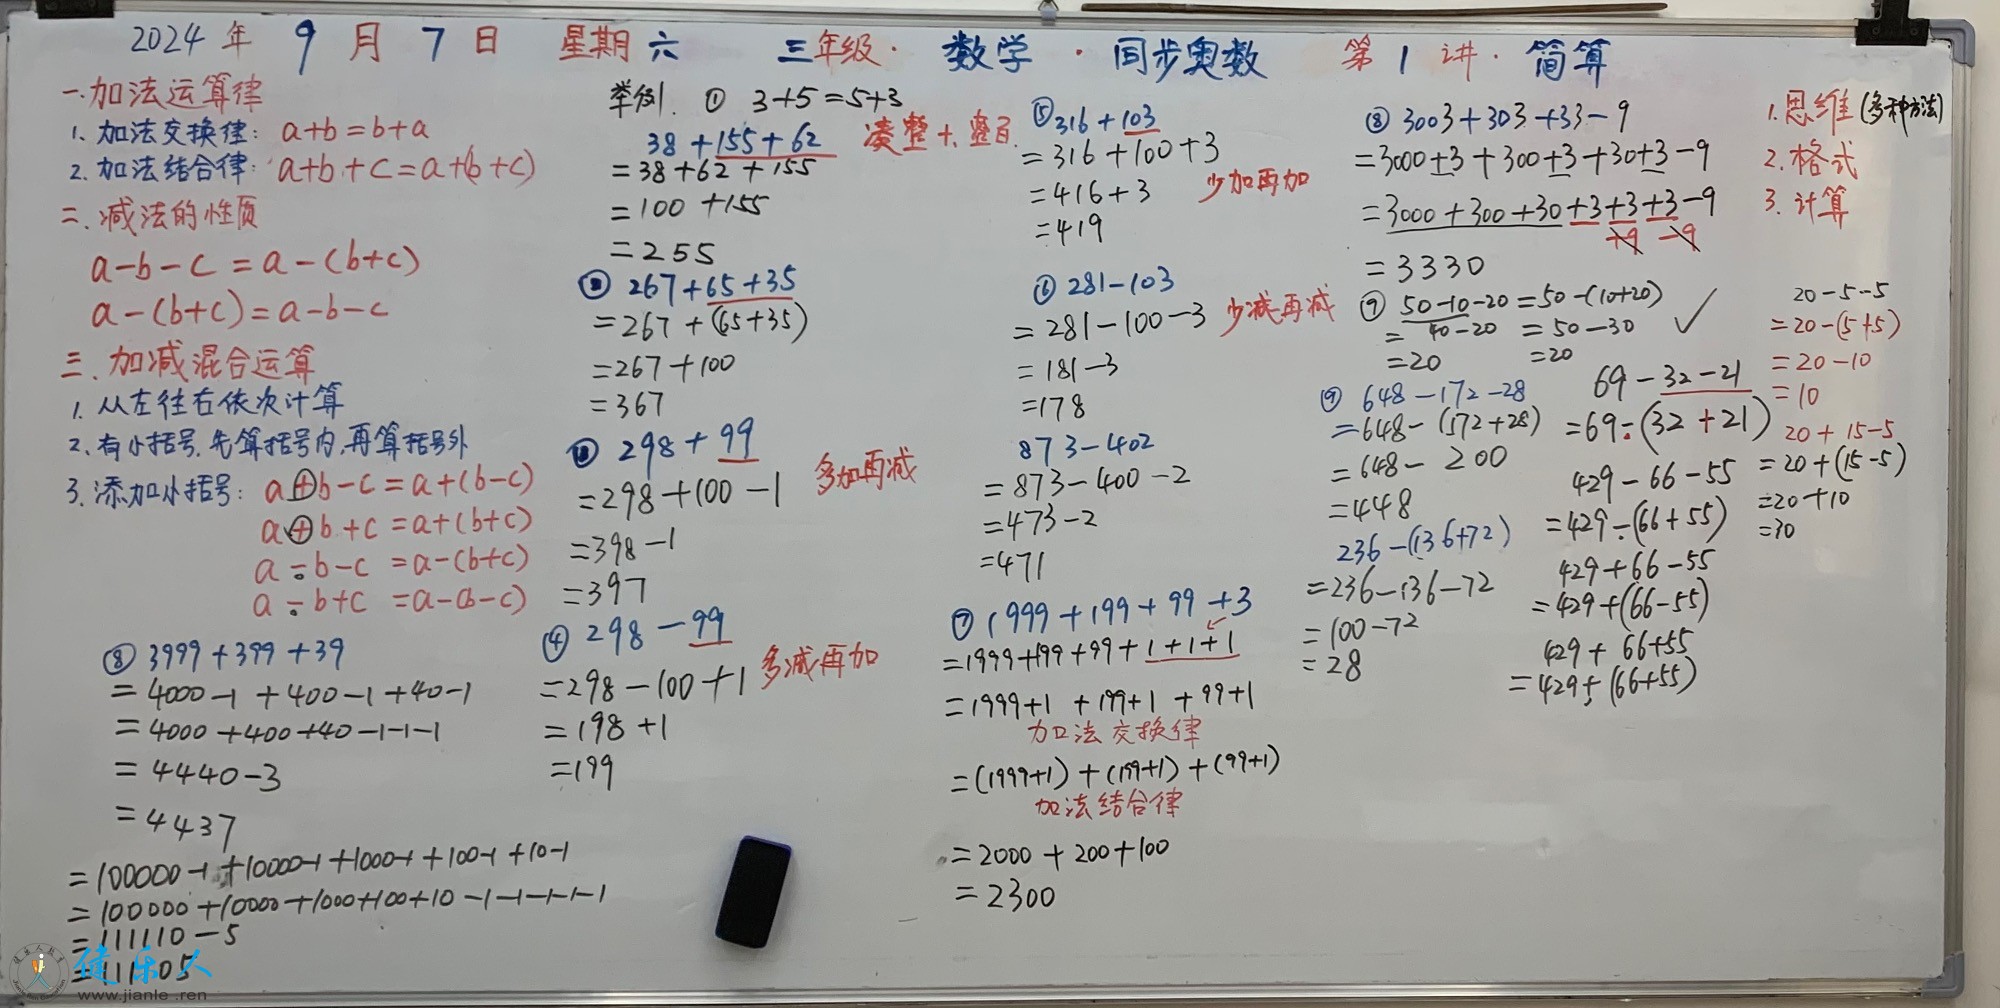 2024年 9月7日 星期六 三年级·数学·同步奥数 第1讲·简算
一.加法运算律
1.加法交换律: a+b=b+a
2.加法结合律: a+b+c=a+(b+c)
二.减法的性质
a-b-c=a-(b+c)
a-(b+c)=a-b-c
三.加减混合运算
1.从左往右依次计算
2.有小括号.先算括号内,再算括号外
3.添加小括号: a+b-c=a+(b-c)
a+b+c=a+(b+c)
a-b-c=a-(b+c)
a-b+c=a-(b-c)
⑧ 3999+399+39
=4000-1+400-1+40-1
=4000+400+40-1-1-1
=4440-3
=4437
=100000-1+10000-1+1000-1+100-1+10-1
=100000+10000+1000+100+10-1-1-1-1-1
=111110-5
=111105
举例. ① 3+5=5+3
38+155+62 凑整十.整百.
=38+62+155
=100+155
=255
② 267+65+35
=267+(65+35)
=267+100
=367
③ 298+99
=298+100-1 多加再减
=398-1
=397
④ 298-99
=298-100+1 多减再加
=198+1
=199
⑤ 316+103
=316+100+3
=416+3 少加再加
=419
⑥ 281-103
=281-100-3 少减再减
=181-3
=178
873-402
=873-400-2
=473-2
=471
⑦ 1999+199+99+3
=1999+199+99+1+1+1
=1999+1+199+1+99+1
加法交换律
=(1999+1)+(199+1)+(99+1)
加法结合律
=2000+200+100
=2300
⑧ 3003+303+33-9
=3000+3+300+3+30+3-9
=3000+300+30+3+3+3-9
+9 -9
=3330
⑨ 50-10-20=50-(10+20) ✓
=40-20 =50-30
=20 =20
⑨ 648-172-28
=648-(172+28)
=648-200
=448
236-(136+72)
=236-136-72
=100-72
=28
69-32-21
=69-(32+21)
429-66-55
=429-(66+55)
429+66-55
=429+(66-55)
429+66+55
=429+(66+55)
1.思维(多种方法)
2.格式
3.计算
20-5-5
=20-(5+5)
=20-10
=10
20+15-5
=20+(15-5)
=20+10
=30
健乐人
www.jianle.ren